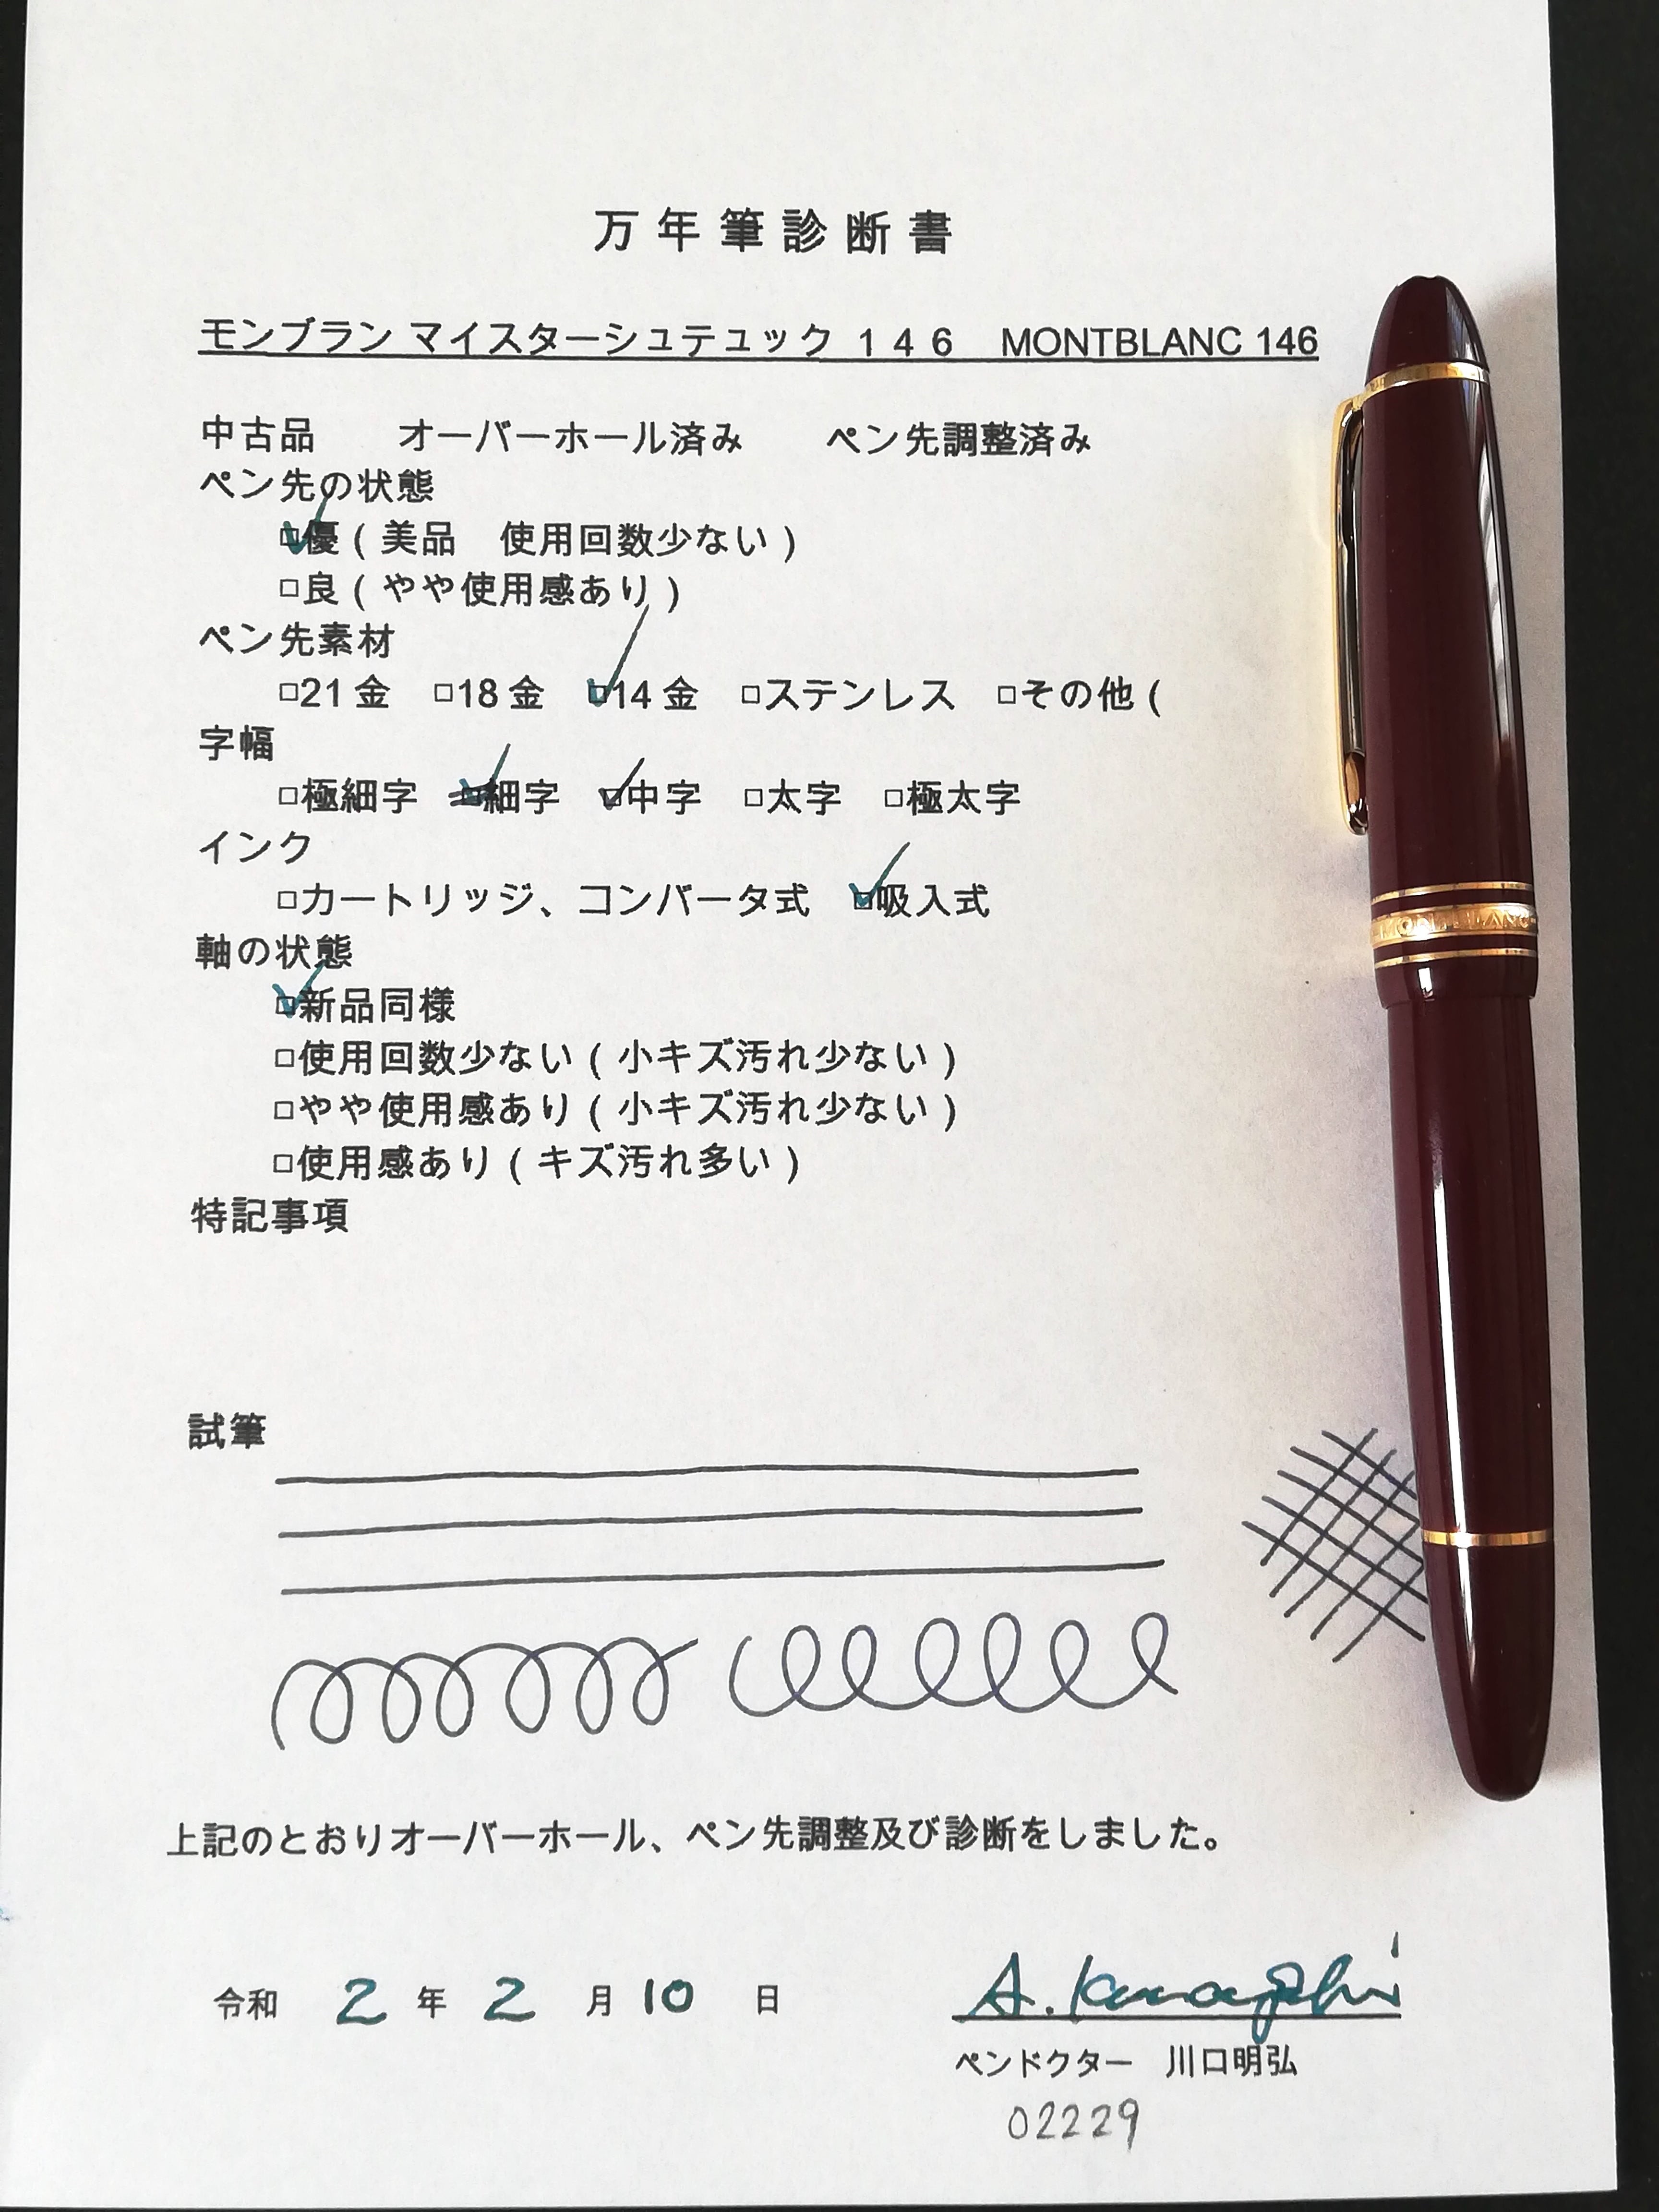 万年筆診断書
モンブラン マイスターシュテュック １４６　MONTBLANC 146
中古品　　オーバーホール済み　　ペン先調整済み
ペン先の状態
☑優（美品　使用回数少ない）
□良（やや使用感あり）
ペン先素材
□21金　□18金　☑14金　□ステンレス　□その他（
字幅
□極細字　☑細字　☑中字　□太字　□極太字
インク
□カートリッジ、コンバータ式　☑吸入式
軸の状態
☑新品同様
□使用回数少ない（小キズ汚れ少ない）
□やや使用感あり（小キズ汚れ少ない）
□使用感あり（キズ汚れ多い）
特記事項
試筆
上記のとおりオーバーホール、ペン先調整及び診断をしました。
令和 2 年 2 月 10 日
A. Kawaguchi
ペンドクター　川口明弘
02229
MONTBLANC